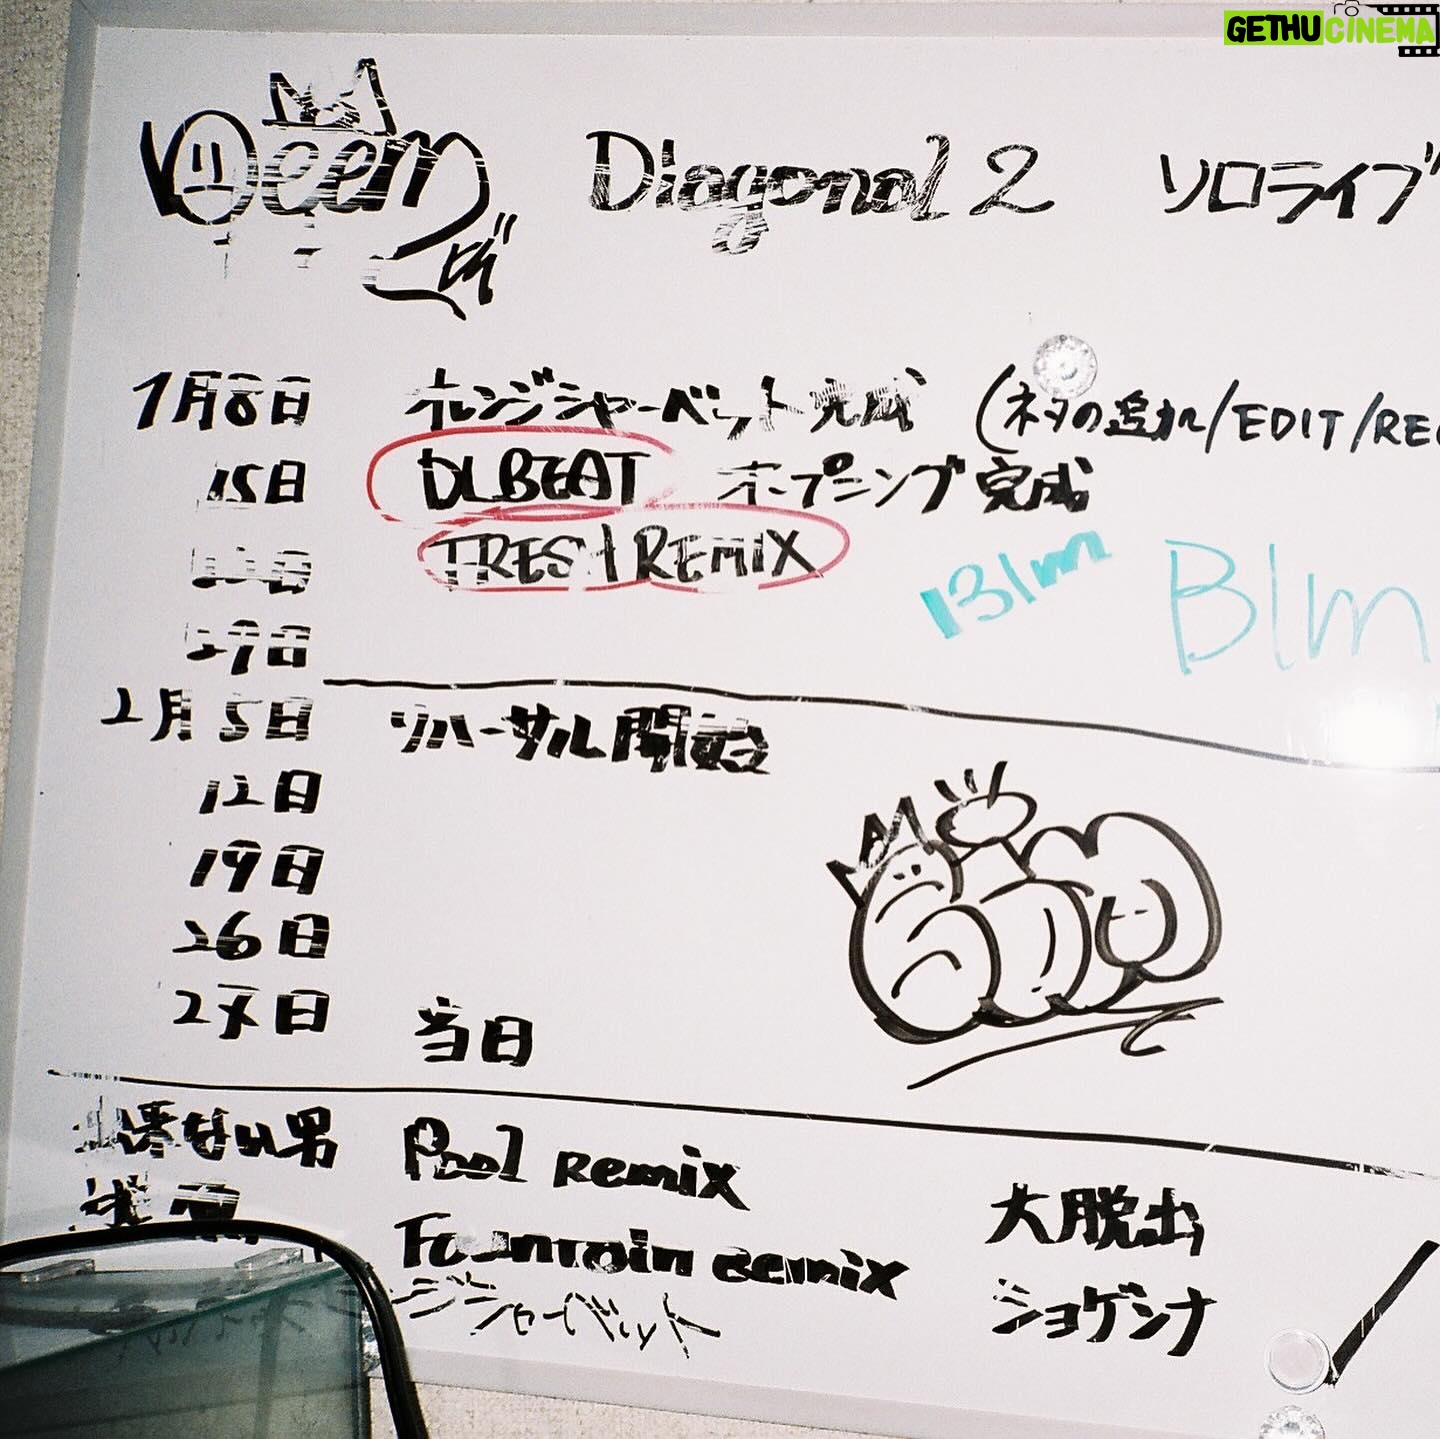 GETHUCINEMA
Deem Diagonal 2 ソロライブ
1月8日 オレンジシャーベット完成 (ネタの追加/EDIT/REC
15日 DLBEAT オープニング完成
FRESH REMIX
Blm Blm
29日
2月5日 リハーサル開始
12日
19日
26日
27日 当日
ない男 Pool Remix 大脱出
Fountain Remix
ジシャーベット ショゲシナ